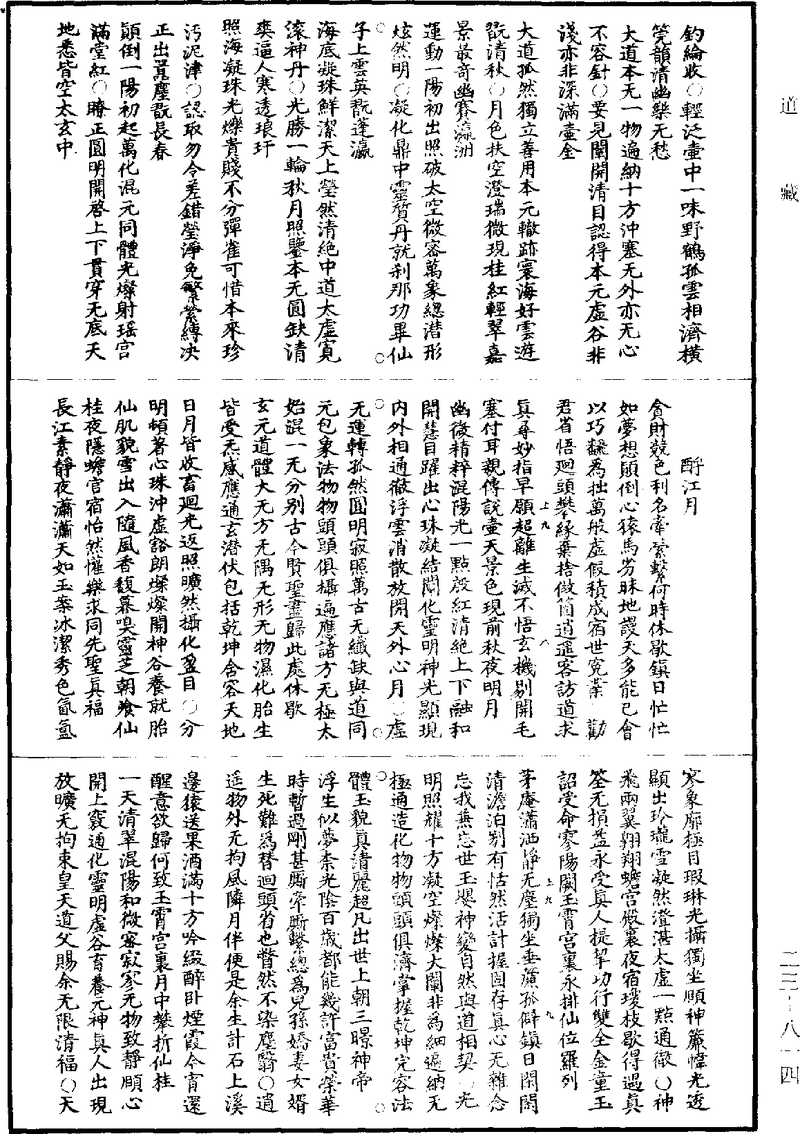 道藏
釣綸收○輕泛壷中一味野鶴孤雲相濟橫
笎韻清幽樂无愁
大道本无一物遍納十方沖塞无外亦无心
不容針○要見闡開清目認得本元虛谷非
淺亦非深滿壷金
大道孤然獨立善用本元轍跡寰海好雲遊
翫清秋○月色扶空澄瑞微現桂紅輕翠嘉
景最奇幽賽瀛洲
運動一陽初出照破太空微密萬象緫潜形
炫然明○凝化鼎中靈質丹就刹那功畢仙
子上雲英翫蓬瀛
海底凝珠鮮潔天上瑩然清絶中道太虛寬
滚神丹○光勝一輪秋月照鑒本无圓缺清
爽逼人寒透琅玕
照海凝珠光爍貴賤不分彈雀可惜本來珍
汚泥津○認取勿令差錯瑩淨免繁縈縛決
正出囂塵翫長春
顛倒一陽初起萬化混元同體光燦射瑶宫
滿堂紅○瞭正圓明開啓上下貫穿无底天
地悉皆空太玄中
酹江月
貪財競色利名牽縈繫何時休歇鎮日忙忙
如夢想顛倒心猿馬劣昧地謾天多能已會
以巧飜為拙萬般虛假積成宿世寃業○勸
君省悟廻頭攀緣棄捨做箇逍遥客訪道求
眞尋妙指早願超離生滅不悟玄機剔開毛
塞付耳親傳說壷天景色現前秋夜明月
幽微精粹混陽光一點啟紅清絶上下融和
開慧目躍出心珠凝結闡化靈明神光顯現
内外相通徹浮雲消散放開天外心月○虛
无運轉孤然圓明寂照萬古无纖缺與道同
元包象法物物頭頭俱攝遍應諸方无極太
始混一无分别古今賢聖盡歸此處休歇
玄元道體大无方无隅无形无物濕化胎生
皆受炁感應通玄潜伏包括乾坤含容天地
日月皆收畜廻光返照曠然攝化盈目○分
明頓著心珠沖虛豁朗燦燦開神谷養就胎
仙肌貌雪出入隨風香馥暮嗅靈芝朝飡仙
桂夜隱蟾宫宿怡然懽樂求同先聖真福
長江素靜夜瀟瀟天如玉案冰潔秀色氤氲
寒象廓極目瑕琳光攝獨坐頤神簾幃光透
顯出玲瓏雪凝然澄湛太虛一點通徹○神
飛兩翼翔翔蟾宫殿裏夜宿瓊枝歇得遇真
筌无損益永受真人提挈功行雙全金童玉
詔受命寥陽闕玉霄宫裏永排仙位羅列
茅庵瀟洒靜无塵獨坐垂簾孤僻鎮日閑閑
清澹泊别有恬然活計握固存真心无雜念
忘我無忘世玉嬰神變自然與道相契○光
明照耀十方凝空燦燦大闡非為細遍納无
極通造化物物頭頭俱濟掌握乾坤完容法
體玉貌真清麗超凡出世上朝三㬢神帝
浮生似夢柰光陰百歲都能幾許富貴榮華
時暫過剛甚厮牽厮繫緫為兒孫嬌妻女婿
生死難為替迴頭省也瞥然不染塵翳○逍
遥物外无拘風隣月伴便是余生計石上溪
邊猿送果酒滿十方吟綴醉卧煙霞今宵還
醒意欲歸何致玉霄宫裏月中攀折仙桂
一天清翠混陽和微密寂寥无物致靜頤心
開上竅通化靈明虛谷畜養元神真人出現
放曠无拘束皇天道父賜余无限清福○天
二三—八一四